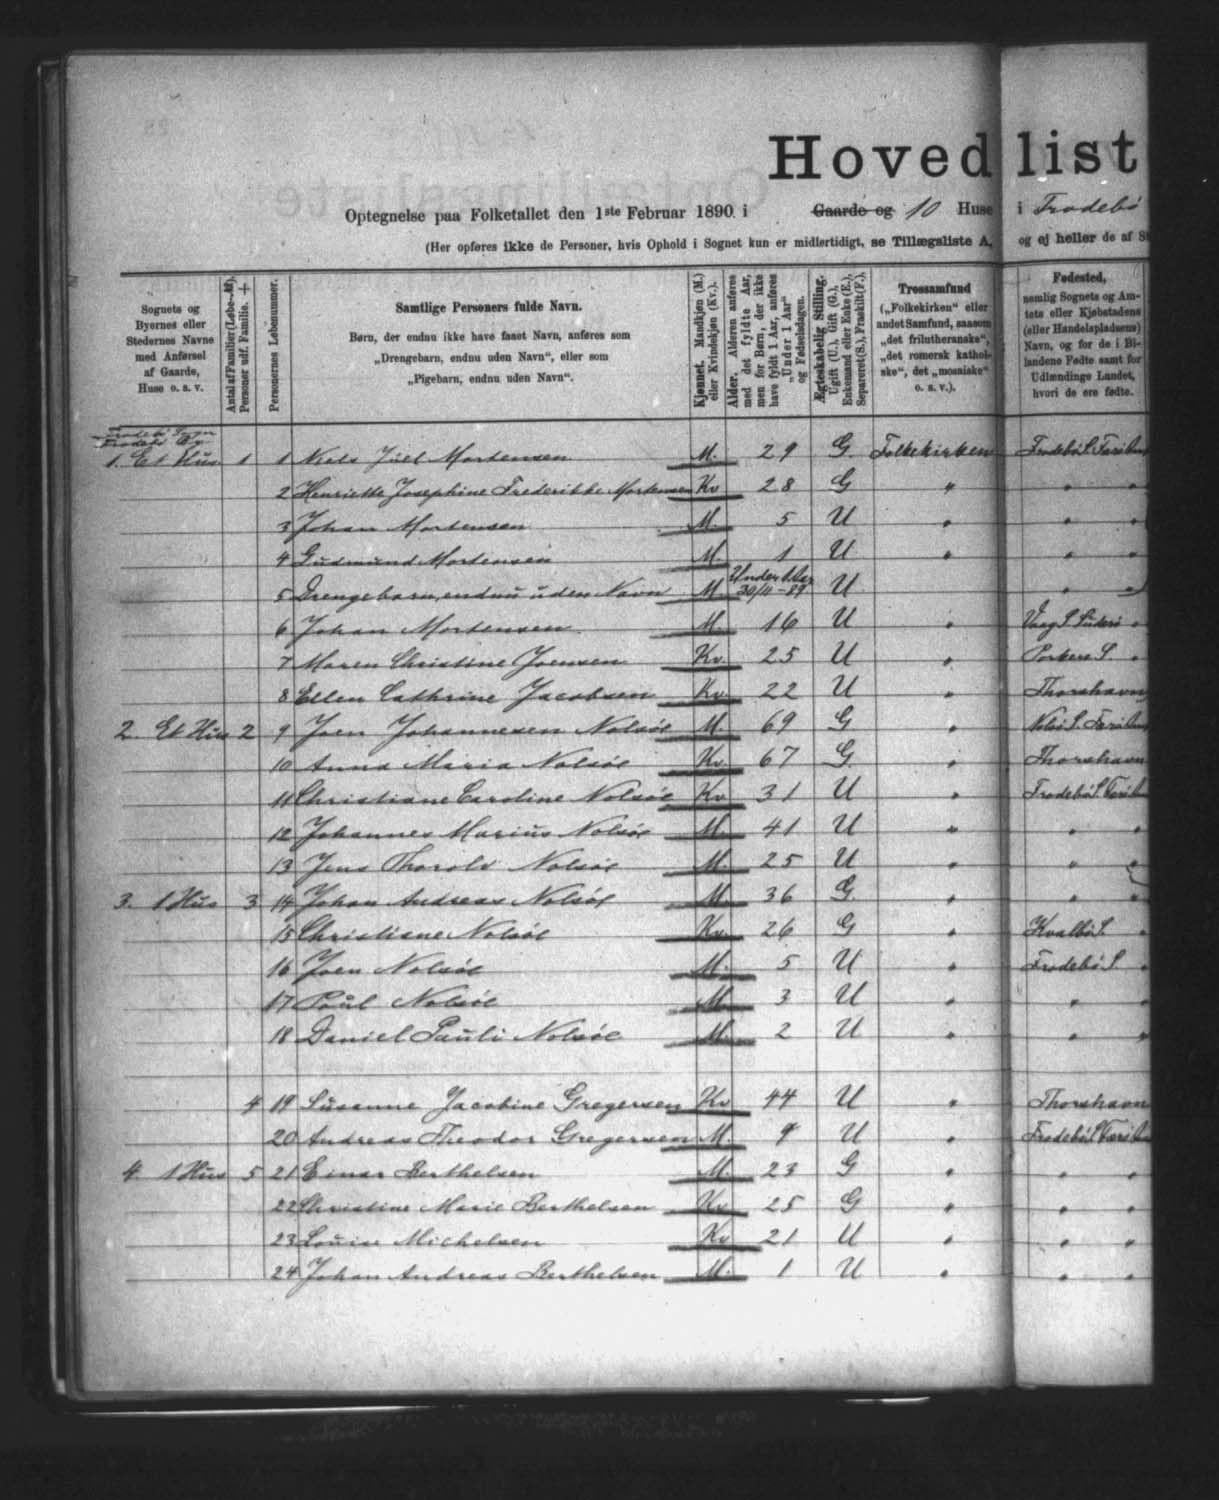 Hovedlist
Optegnelse paa Folketallet den 1ste Februar 1890 i Gaarde og 10 Huse i Frodebö
(Her opføres ikke de Personer, hvis Ophold i Sognet kun er midlertidigt, se Tillægsliste A, og ej heller de af
Sognets og Byernes eller Stedernes Navne med Anførsel af Gaarde, Huse o. s. v.
Antal af Familier (Løbe-№). Personer udf. Familie. +
Personernes Løbenummer.
Samtlige Personers fulde Navn.
Børn, der endnu ikke have faaet Navn, anføres som
„Drengebarn, endnu uden Navn“, eller som
„Pigebarn, endnu uden Navn“.
Kjønnet. Mandkjøn (M.) eller Kvindekjøn (Kv.).
Alder. Alderen anføres med det fyldte Aar, men for Børn, der ikke have fyldt 1 Aar, anføres „Under 1 Aar“ og Fødselsdagen.
Ægteskabelig Stilling. Ugift (U.), Gift (G.), Enkemand eller Enke (E.), Separeret (S.), Fraskilt (F.),
Trossamfund
(„Folkekirken“ eller andet Samfund, saasom „det frilutheranske“, „det romersk katholske“, det „mosaiske“ o. s. v.).
Fødested,
nemlig Sognets og Amtets eller Kjøbstadens (eller Handelspladsens) Navn, og for de i Bilandene Fødte samt for Udlændinge Landet, hvori de ere fødte.
Frodebö Sogn
Frodebö By
1. Et Hus 1 1 Niels Jüel Mortensen M. 29 G Folkekirken Frodebö S.
2 Henriette Josephine Frederikke Mortensen Kv 28 G " " "
3 Johan Mortensen M. 5 U " " "
4 Gudmund Mortensen M. 1 U " " "
5 Drengebarn, endnu uden Navn M. Under 1 Aar 30/11-89 U " "
6 Johan Mortensen M. 16 U " Vaag S. Suderö "
7 Maren Christine Joensen Kv. 25 U " Porkere S. "
8 Ellen Cathrine Jacobsen Kv. 22 U " Thorshavn
2. Et Hus 2 9 Joen Johannesen Nolsöe M. 69 G " Nolsö S.
10 Anna Maria Nolsöe Kv. 67 G. " Thorshavn
11 Christiane Caroline Nolsöe Kv. 31 U " Frodebö S.
12 Johannes Marius Nolsöe M. 41 U " " "
13 Jens Thorolv Nolsöe M. 25 U " " "
3. 1 Hus 3 14 Johan Andreas Nolsöe M. 36 G. " " "
15 Christiane Nolsöe Kv. 26 G " Kvalbö S. "
16 Joen Nolsöe M. 5 U " Frodebö S "
17 Poul Nolsöe M. 3 U " " "
18 Daniel Pauli Nolsöe M. 2 U " " "
4 19 Susanne Jacobine Gregersen Kv 44 U " Thorshavn
20 Andreas Theodor Gregersen M. 9 U " Frodebö S.
4. 1 Hus 5 21 Einar Berthelsen M. 23 G " " "
22 Christine Marie Berthelsen Kv. 25 G " " "
23 Louise Michelsen Kv 21 U " " "
24 Johan Andreas Berthelsen M. 1 U " " "